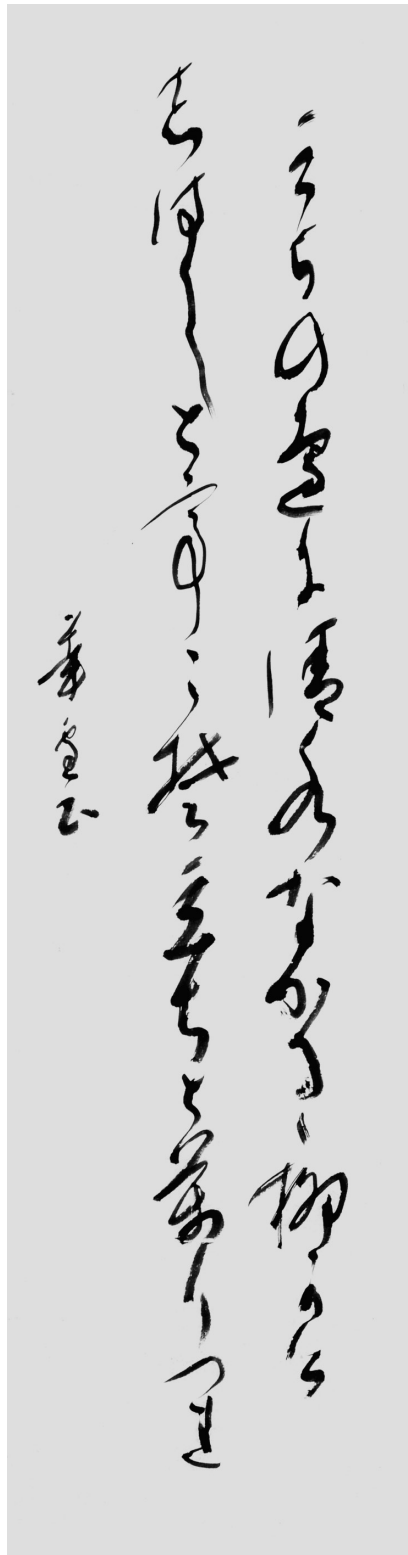 みちの邊に清水なかるゝ柳かけ
しはしとてこそ立ちとまりつれ